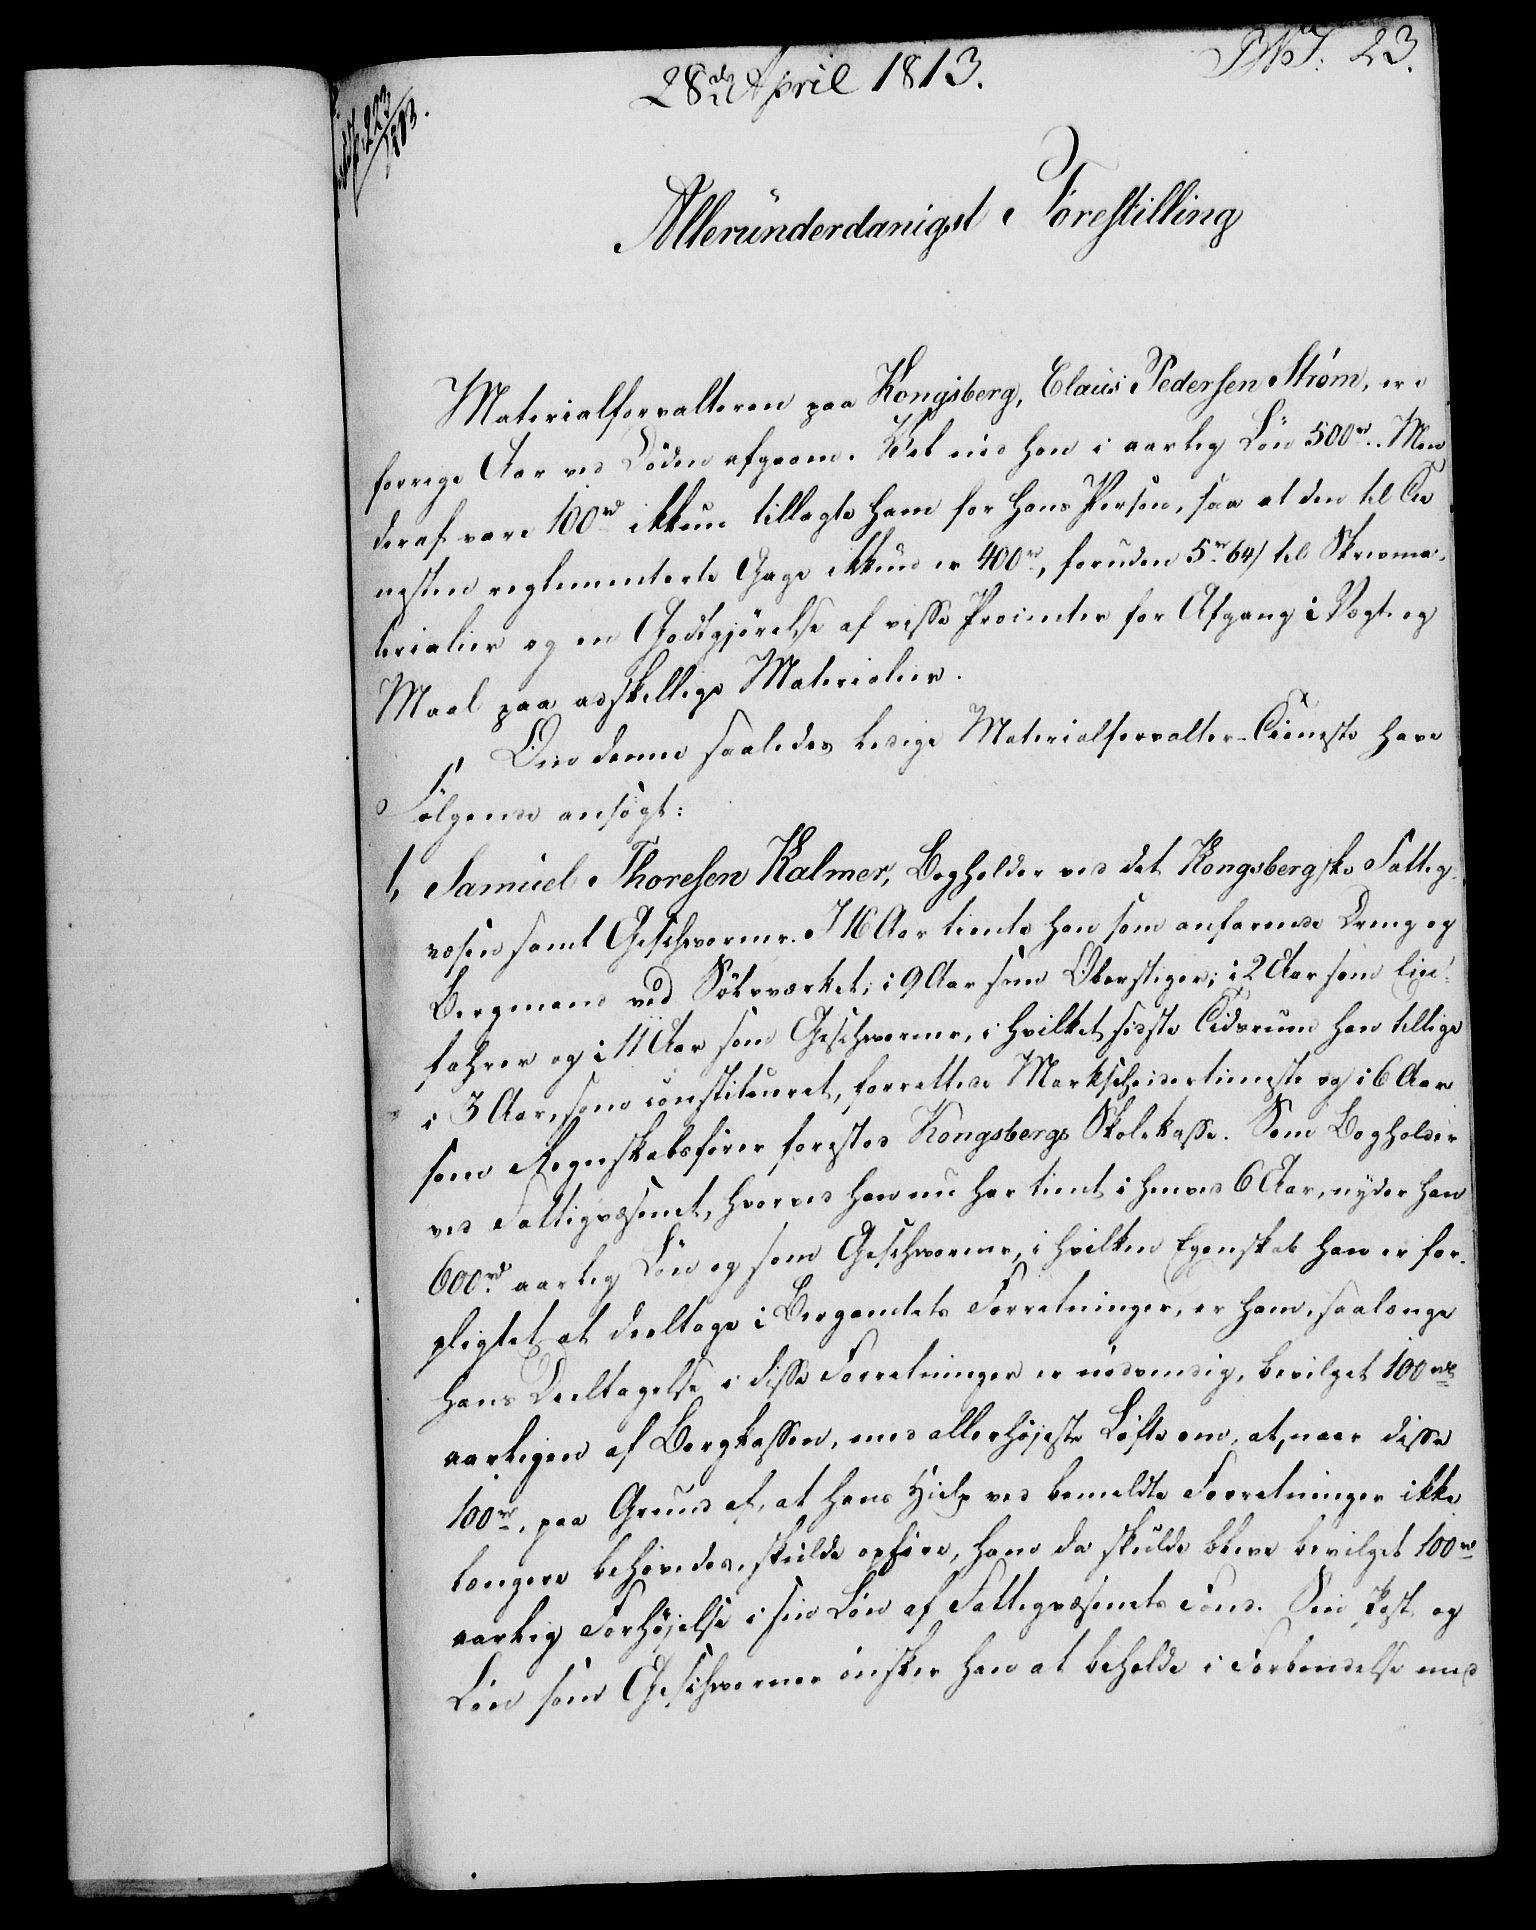 28de April 1813.
23.
223/1813.
Alleründerdanigst Forestilling
Materialforvalteren paa Kongsberg, Claus Pedersen Strøm, er i
forrige Aar ved Døden afgaaen. Vel nød han i aarlig Løn 500rd. Men
deraf vare 100rd ikkun tillagte ham for hans Person, saa at den til Tie-
nesten reglementerte Gage ikkun er 400rd, foruden 5rd 64s til Skrivma-
terialier og en Godtgjørelse af visse Procenter for Afgang i Vægt og
Maal paa adskillige Materialier.
Om denne saaledes ledige Materialforvalter-Tieneste have
Følgende ansøgt:
1, Samuel Thoresen Kalmer, Bogholder ved det Kongsbergske Fattig-
væsen samt Geschworner. I 16 Aar tiente han som anfarende Dreng og
Bergmand ved Sølvværket; i 9 Aar som Oberstiger; i 2 Aar som Ein-
fahrer og i 11 Aar som Geschworner, i hvilket sidste Tidsrum han tillige
i 3 Aar, som constitueret, forrettede Markscheidertieneste og i 6 Aar
som Regnskabsfører forestod Kongsbergs Skolekasse. Som Bogholder
ved Fattigvæsenet, hvorved han nu har tient i henved 6 Aar, nyder han
600rd aarlig Løn og som Geschworner, i hvilken Egenskab han er for-
pligtet at deeltage i Bergamtets Forretninger, er ham, saalænge
hans Deeltagelse i disse Forretninger er nødvendig, bevilget 100rd
aarligen af Bergkassen, med allerhøjeste Løfte om, at, naar disse
100rd, paa Grund af, at hans Hielp ved bemeldte Forretninger ikke
længere behøvedes, skulde ophøre, ham da skulde blive bevilget 100rd
aarlig Forhøjelse i sin Løn af Fattigvæsenets Fond. Sin Post og
Løn som Geschworner ønsker han at beholde i Forbindelse med